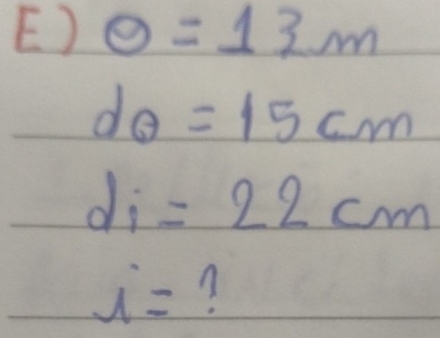 E) O = 13 m
do = 15 cm
di = 22 cm
i = ?